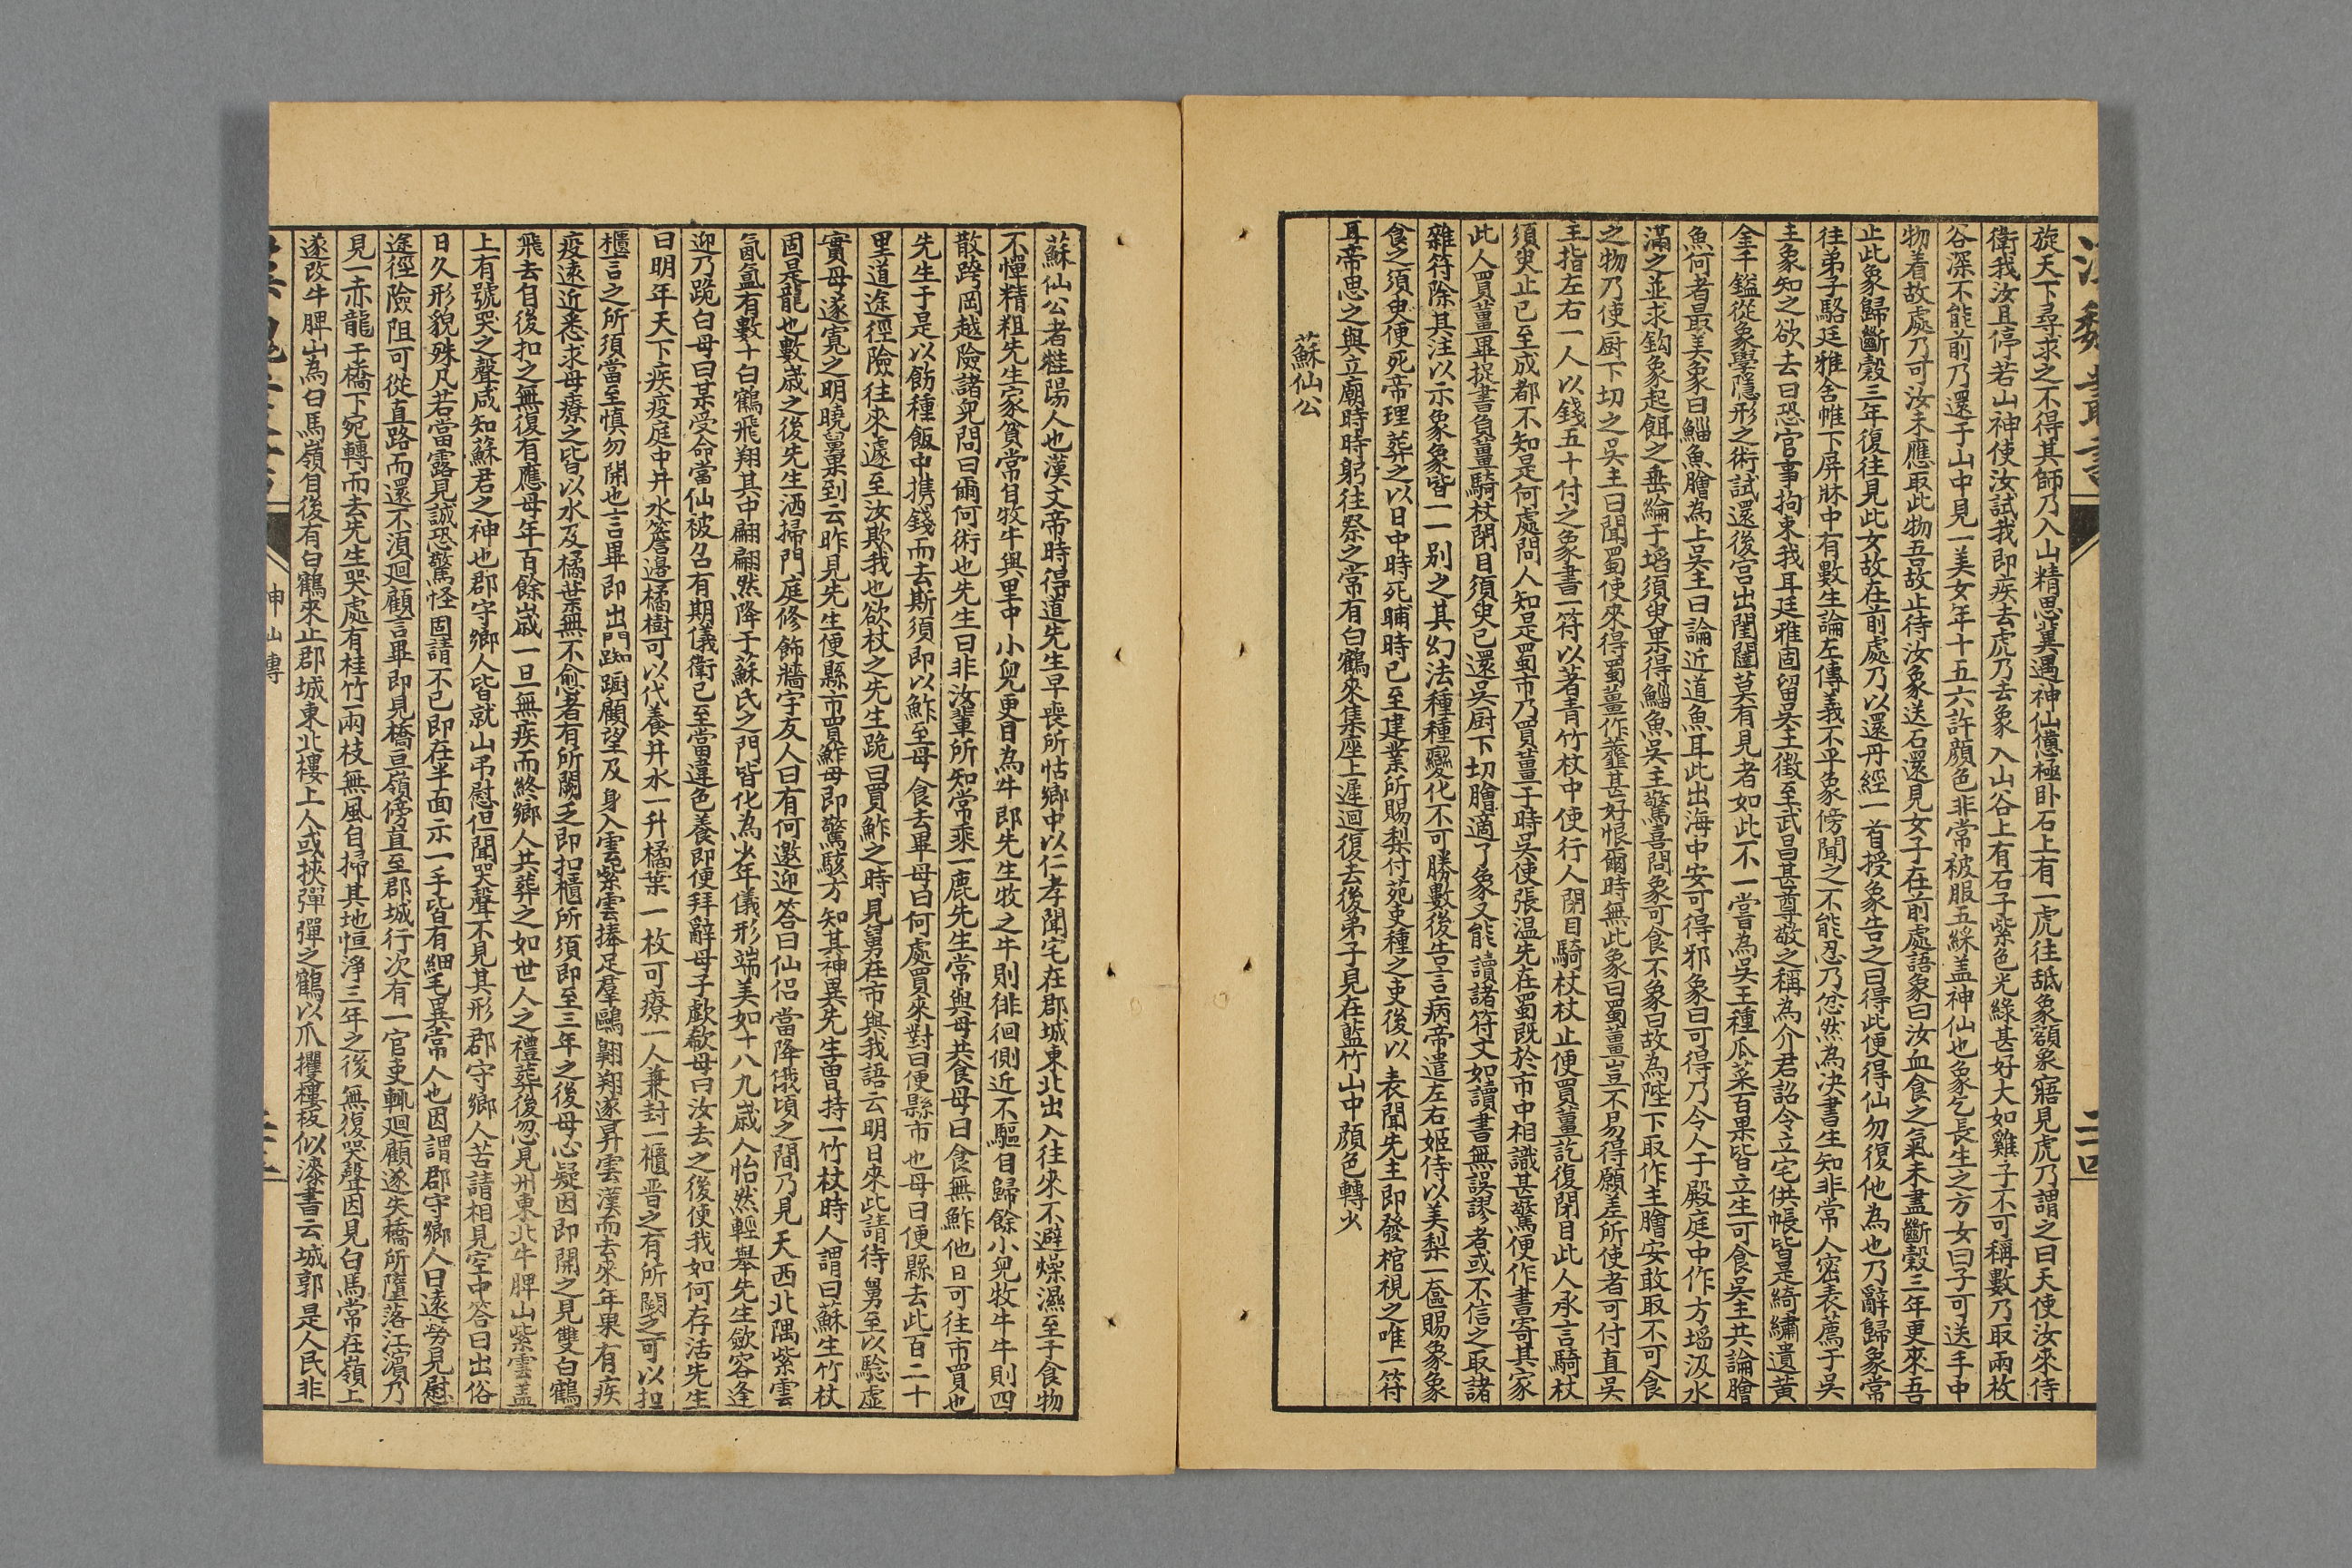 旋天下尋求之不得其師乃入山精思冀遇神仙憊極卧石上有一虎往舐象額象寤見虎乃謂之曰天使汝來侍
衛我汝且停若山神使汝試我即疾去虎乃去象入山谷上有石子紫色光綠甚好大如雞子不可稱數乃取兩枚
谷深不能前乃還于山中見一美女年十五六許顏色非常被服五綵盖神仙也象乞長生之方女曰子可送手中
物着故處乃可汝未應取此物吾故止待汝象送石還見女子在前處語象曰汝血食之氣未盡斷穀三年更來吾
止此象歸斷穀三年復往見此女故在前處乃以還丹經一首授象告之曰得此便得仙勿復他為也乃辭歸象常
往弟子駱廷雅舍帷下屏牀中有數生論左傳義不平象傍聞之不能忍乃忿然為决書生知非常人密表薦于吳
主象知之欲去曰恐官事拘束我耳廷雅固留吳王徴至武昌甚尊敬之稱為介君詔令立宅供帳皆是綺繡遺黃
金千鎰從象學隱形之術試還後宮出閨闥莫有見者如此不一嘗為吳王種瓜菜百果皆立生可食吳主共論膾
魚何者最美象曰鯔魚膾為上吳主曰論近道魚耳此出海中安可得邪象曰可得乃令人于殿庭中作方塪汲水
滿之並求鈎象起餌之垂綸于塪須臾果得鯔魚吳主驚喜問象可食不象曰故為陛下取作主膾安敢取不可食
之物乃使厨下切之吳主曰聞蜀使來得蜀薑作虀甚好恨爾時無此象曰蜀薑豈不易得願差所使者可付直吳
主指左右一人以錢五十付之象書一符以著青竹杖中使行人閉目騎杖杖止便買薑訖復閉目此人承言騎杖
須臾止已至成都不知是何處問人知是蜀市乃買薑于時吳使張温先在蜀既於市中相識甚驚便作書寄其家
此人買薑畢捉書負薑騎杖閉目須臾已還吳厨下切膾適了象又能讀諸符文如讀書無誤謬者或不信之取諸
雜符除其注以示象象皆一一別之其幻法種種變化不可勝數後告言病帝遣左右姬侍以美梨一奩賜象象
食之須臾便死帝理葬之以日中時死晡時已至建業所賜梨付苑吏種之吏後以表聞先主即發棺視之唯一符
耳帝思之與立廟時時躬往祭之常有白鶴來集座上遲迴復去後弟子見在藍竹山中顏色轉少
蘇仙公
二四
蘇仙公者桂陽人也漢文帝時得道先生早喪所怙鄉中以仁孝聞宅在郡城東北出入往來不避燥濕至于食物
不憚精粗先生家貧常自牧牛與里中小兒更日為牛即先生牧之牛則徘徊側近不驅自歸餘小兒牧牛牛則四
散跨岡越險諸兒問曰爾何術也先生曰非汝輩所知常乘一鹿先生常與母共食母曰食無鮓他日可往市買也
先生于是以飭種飯中携錢而去斯須即以鮓至母食去畢母曰何處買來對曰便縣市也母曰便縣去此百二十
里道途徑險往來遽至汝欺我也欲杖之先生跪曰買鮓之時見舅在市與我語云明日來此請待舅至以騐虛
實母遂寬之明曉舅果到云昨見先生便縣市買鮓母即驚駭方知其神異先生曽持一竹杖時人謂曰蘇生竹杖
固是龍也數歲之後先生洒掃門庭修飾牆宇友人曰有何邀迎答曰仙侶當降俄頃之間乃見天西北隅紫雲
氤氳有數十白鶴飛翔其中翩翩然降于蘇氏之門皆化為少年儀形端美如十八九歲人怡然輕舉先生歛容逢
迎乃跪白母曰某受命當仙被召有期儀衛已至當違色養即便拜辭母子歔欷母曰汝去之後使我如何存活先生
曰明年天下疾疫庭中井水簷邊橘樹可以代養井水一升橘葉一枚可療一人兼封一櫃畱之有所闕之可以扣
櫃言之所須當至慎勿開也言畢即出門踟蹰顧望及身入雲紫雲捧足羣鷗翺翔遂昇雲漢而去來年果有疾
疫遠近悉求母療之皆以水及橘葉無不愈者有所闕乏即扣櫃所須即至三年之後母心疑因即開之見雙白鶴
飛去自後扣之無復有應母年百餘歲一旦無疾而終鄉人共葬之如世人之禮葬後忽見州東北牛脾山紫雲蓋
上有號哭之聲咸知蘇君之神也郡守鄉人皆就山弔慰但聞哭聲不見其形郡守鄉人苦請相見空中答曰出俗
日久形貌殊凡若當露見誠恐驚怪固請不已即在半面示一手皆有細毛異常人也因謂郡守鄉人曰遠勞見慰
途徑險阻可從直路而還不須廻顧言畢即見橋亘嶺傍直至郡城行次有一官吏輒廻顧遂失橋所墮落江濱乃
見一赤龍于橋下宛轉而去先生哭處有桂竹兩枝無風自掃其地恒淨三年之後無復哭聲因見白馬常在嶺上
遂改牛脾山為白馬嶺自後有白鶴來止郡城東北樓上人或挾彈彈之鶴以爪攫樓板似漆書云城郭是人民非